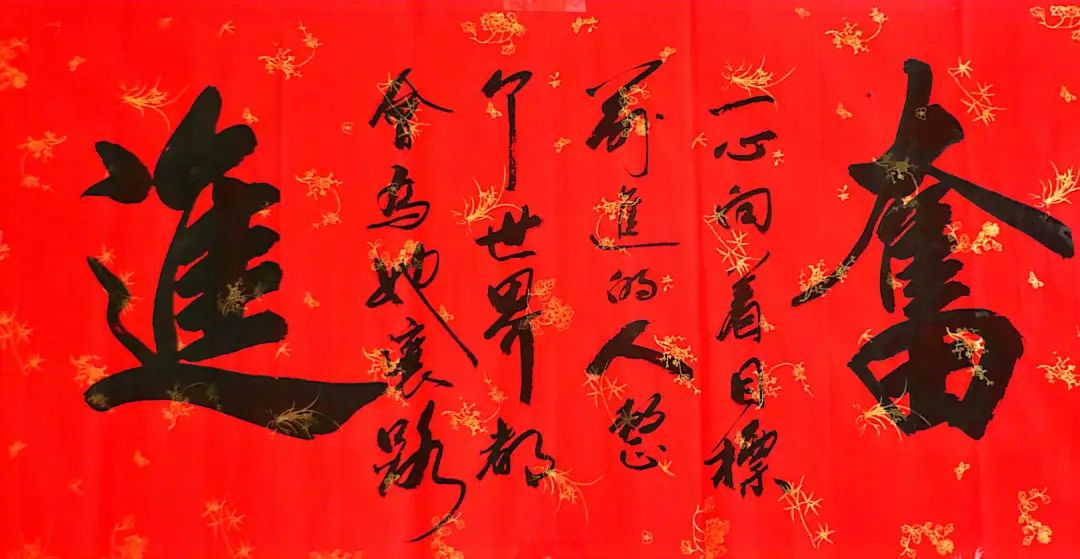 奮
一心向着目標
前進的人整
个世界都
會為她讓路
進